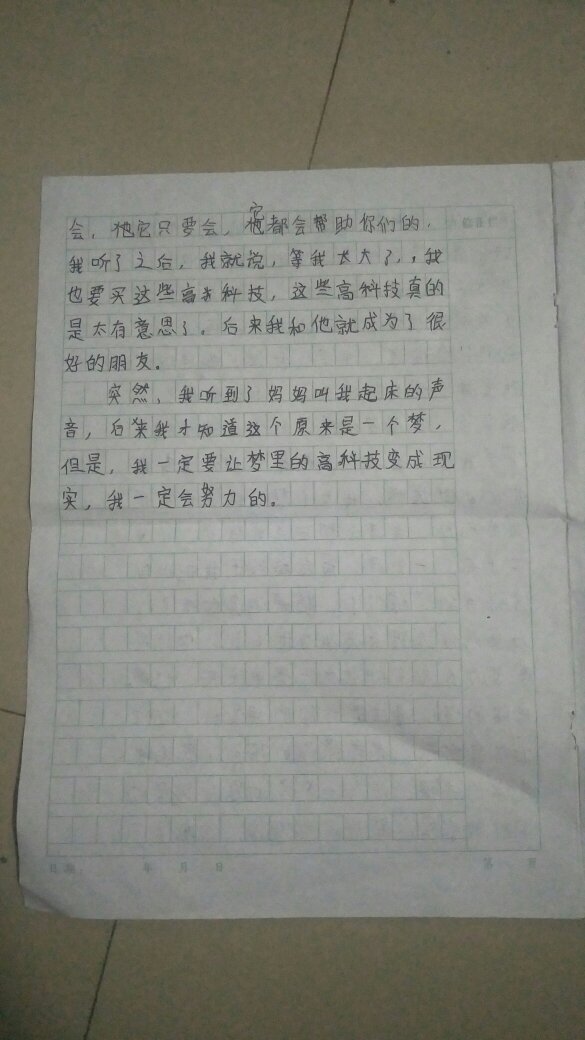 会，他它只要会，它都会帮助你们的，
我听了之后，我就说，等我长大了，，我
也要买这些高科技，这些高科技真的
是太有意思了。后来我和他就成为了很
好的朋友。
突然，我听到了妈妈叫我起床的声
音，后来我才知道这个原来是一个梦，
但是，我一定要让梦里的高科技变成现
实，我一定会努力的。
日期 年 月 日 第 页